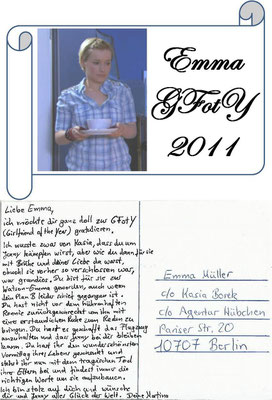 Emma
GFotY
2011
Liebe Emma,
ich möchte dir ganz doll zur GFotY
(Girlfriend of the Year) gratulieren.
Ich wusste zwar von Kasia, dass du um
Jenny kämpfen wirst, aber wie du dann für sie
mit Brücke und deiner Liebe da warst,
obwohl sie vorher so verschlossen war,
war grandios. Du bist für sie zur
Watson-Emma geworden, auch wenn
dein Plan B leider schief gegangen ist.
Du hast nicht vor dem
Ronnie zurückgeschreckt um ihn mit
einer erstaunlichen Ruhe zum Reden zu
bringen. Du hast es geschafft das Flugzeug
anzuhalten und das Jenny bei dir bleiben
kann. Du hast ihr den wunderschönsten
Vormittag ihres Lebens geschenkt und
stehst ihr nun mit dem tragischen Tod
ihrer Eltern bei und findest immer die
richtigen Worte um sie aufzubauen.
Ich bin stolz auf dich und wünsche
dir und Jenny alles Glück der Welt. Deine Martina
Emma Müller
c/o Kasia Borek
c/o Agentur Hübchen
Pariser Str. 20
10707 Berlin